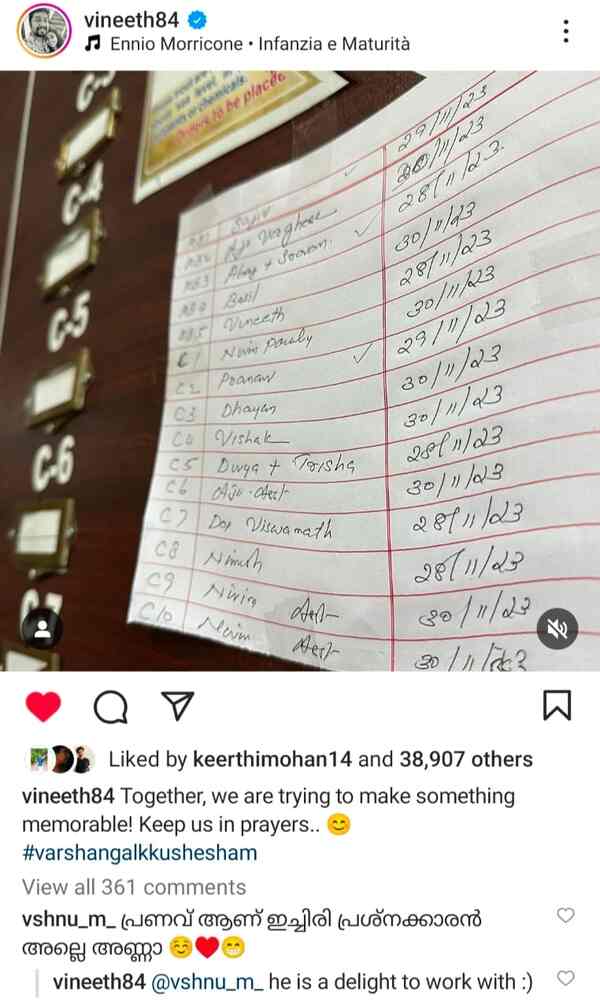 vineeth84
Ennio Morricone • Infanzia e Maturità
to be placed
C-4
C-5
C-6
29/11/23
Aju Varghese 30/11/23
28/11/23
Basil 30/11/23
Vineeth 28/11/23
C1 Nivin Pauly 30/11/23
C2 Pranav 29/11/23
C3 Dhayan 30/11/23
C4 Vishak 30/11/23
C5 Divya + Trisha 28/11/23
C6 Aju-Asst 30/11/23
C7 Dop Viswanath 28/11/23
C8 28/11/23
C9 Nivin Asst 30/11/23
C10 Asst 30/11/23
Liked by keerthimohan14 and 38,907 others
vineeth84 Together, we are trying to make something
memorable! Keep us in prayers.. 😊
#varshangalkkushesham
View all 361 comments
vshnu_m_ പ്രണവ് ആണ് ഇച്ചിരി പ്രശ്നക്കാരൻ
അല്ലെ അണ്ണാ ☺️❤️😁
vineeth84 @vshnu_m_ he is a delight to work with :)